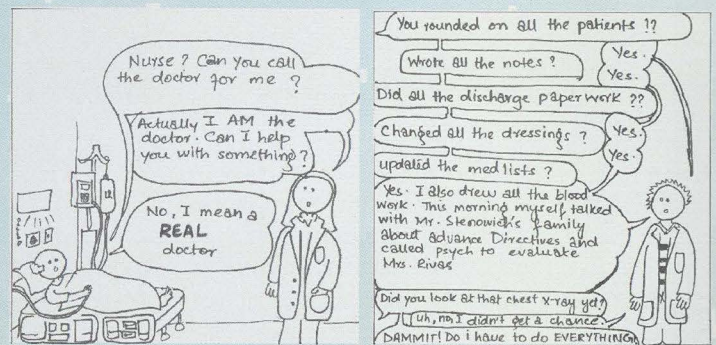 Nurse? Can you call
the doctor for me?
Actually I AM the
doctor. Can I help
you with something?
No, I mean a
REAL
doctor
You rounded on all the patients!?
Yes.
Wrote all the notes?
Yes.
Did all the discharge paperwork??
Yes.
Changed all the dressings?
Yes.
updated the med lists?
Yes. I also drew all the blood
work. This morning myself talked
with Mr. Stenowich's family
about advance Directives and
called psych to evaluate
Mrs. Rivas
Did you look at that chest x-ray yet?
uh, no, I didn't get a chance.
DAMMIT! Do i have to do EVERYTHING